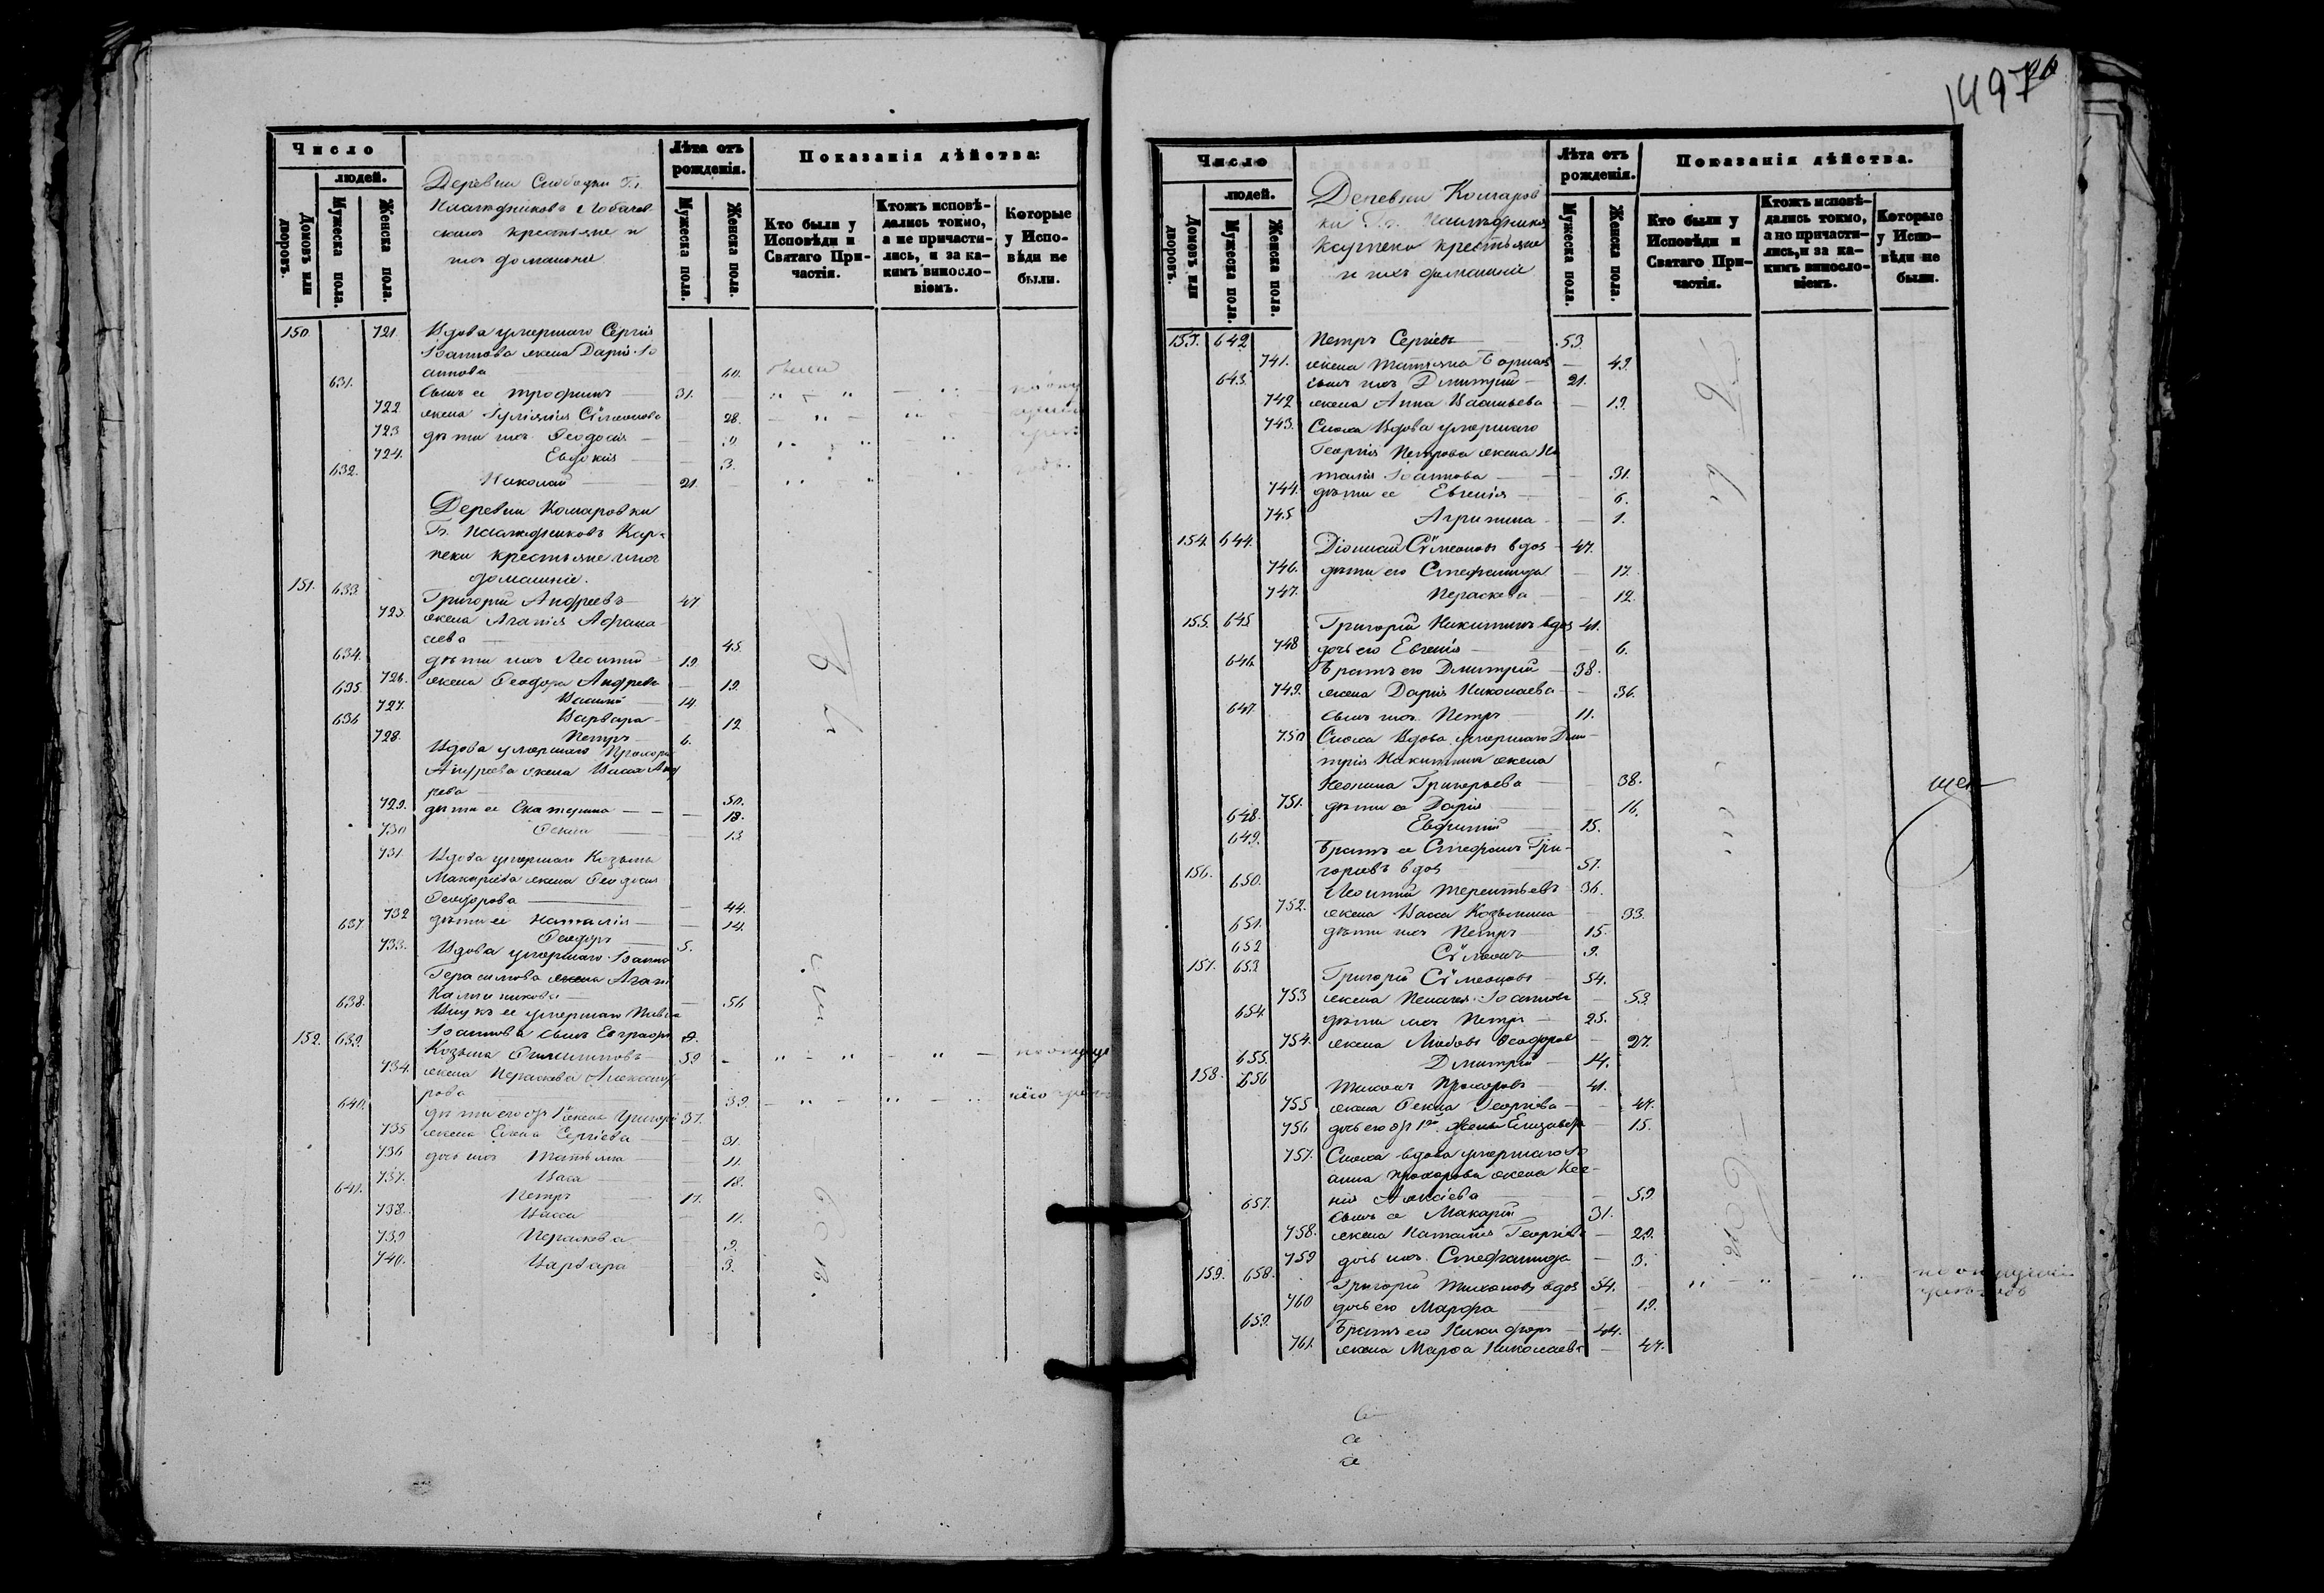 Число
людей.
Домовъ или дворовъ.
Мужеска пола.
Женска пола.
Деревни Слободки Гг.
крестьяне и
ихъ домашніе
Лѣта отъ рожденія.
Мужеска пола.
Женска пола.
Показанія дѣйства:
Кто были у Исповѣди и Святаго Причастія.
Ктожъ исповѣдались токмо, а не причастились, и за какимъ винословіемъ.
Которые у Исповѣди не были.
150. 721. Вдова умершаго Сергія
Іоаннова жена Дарія Іо
аннова — 60. были
631. Сынъ ее Трофимъ — 31.
722 жена Іуліанія Сѵмеонова 28.
723 дѣти ихъ Ѳеодосія —
724. Евдокія — 3.
632. Николай — 21.
Деревни Комаровки
Гг. Кар-
пеки крестьяне и ихъ
домашніе.
151. 633 Григорій Андреевъ — 47
725. жена Агапія Аѳана
сіева — 45.
634. дѣти ихъ Леонтій — 19.
726. жена Ѳеодора Андреева — 19.
635. Василій — 14.
727. Варвара — 12
636 Петръ — 6.
728. Вдова умершаго Прохора
Андреева жена Васса Анд
реева — 50.
729. дѣти ее Екатерина — 18.
730 Ѳекла — 13
731. Вдова умершаго Козьмы
Макаріева жена Ѳеодосія
Ѳеодорова — 44.
732 дѣти ее Наталія — 14.
637. Ѳеодоръ — 5.
733. Вдова умершаго Іоанна
Герасимова жена Агапія
Каллиникова — 56
638. Внукъ ее умершаго Павла
Іоаннова сынъ Евграфъ 9.
152. 639. Козьма Филипповъ — 59
734. жена Параскева Александ
рова — 39.
640. дѣти его отъ 1й жены Григорій 37.
735 жена Елена Сергіева — 31.
736 дочь ихъ Татьяна — 11.
737. Васса — 18.
641. Петръ — 17.
738. Васса — 11.
739 Параскева — 9.
740. Варвара — 3.
1497
Число
людей.
Домовъ или дворовъ.
Мужеска пола.
Женска пола.
Деревни Комаров
ки Гг.
Карпеко крестьяне
и ихъ домашніе
Лѣта отъ рожденія.
Мужеска пола.
Женска пола.
Показанія дѣйства.
Кто были у Исповѣди и Святаго Причастія.
Ктожъ исповѣдались токмо, а не причастились, и за какимъ винословіемъ.
Которые у Исповѣди не были.
153. 642 Петръ Сергіевъ — 53.
741. жена Татьяна — 49.
643. сынъ ихъ Димитрій — 21.
742 жена Анна Васильева — 19.
743. Сноха Вдова умершаго
Георгія Петрова жена На
талія Іоаннова — 31.
744. дѣти ее Евгенія — 6.
745 Агрипина — 1.
154. 644. Діонисій Сѵмеоновъ вдов 47.
746. дѣти его Стефанида — 17.
747. Параскева — 12.
155. 645 Григорій Никитинъ вдов 41.
748 дочь его Евгенія — 6.
646. Братъ его Димитрій — 38.
749. жена Дарія Николаева — 36.
647. Сынъ ихъ Петръ — 11.
750 Сноха Вдова умершаго Дими-
трія Никитина жена
Григорьева — 38.
751. дѣти ее Дарія — 16.
648. Евфимій — 15.
649. Братъ ее Стефанъ Гри-
горіевъ вдов — 51.
156. 650. Леонтій Терентьевъ 36.
752. жена Васса Козьмина 33.
651. дѣти ихъ Петръ — 15.
652 Сѵмеонъ — 9.
157. 653 Григорій Сѵмеоновъ — 54.
753 жена Пелагея Іоаннова — 53.
654 дѣти ихъ Петръ — 25.
754. жена Любовь Ѳеодоров — 27.
655. Димитрій — 14.
158. 656 Тихонъ Прохоровъ — 41.
755 жена Ѳекла Георгіева — 47.
756 дочь его отъ 1й жены Елизавета — 15.
757. Сноха вдова умершаго Іо
анна Прохорова жена Ксе-
нія Алексіева — 59.
657. Сынъ ее Макарій 31.
758. жена Наталія Георгіева — 29.
759 дочь ихъ Стефанида — 3.
159. 658. Григорій Тихоновъ вдов 54.
760 дочь его Марфа — 19.
659. Братъ его Никифоръ — 44.
761. жена Марфа Николаева — 47.